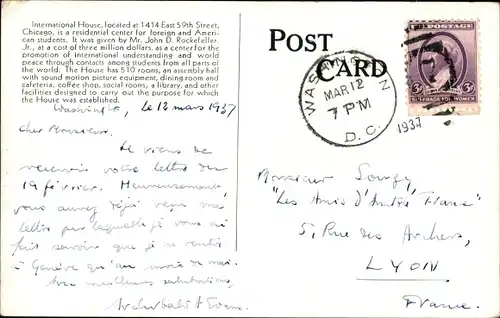 International House, located at 1414 East 59th Street,
Chicago, is a residential center for foreign and Ameri-
can students. It was given by Mr. John D. Rockefeller.
Jr., at a cost of three million dollars, as a center for the
promotion of international understanding and world
peace through contacts among students from all parts
of the world. The House has 510 rooms, an assembly hall
with sound motion picture equipment, dining room and
cafeteria, coffee shop, social rooms, a library, and other
facilities designed to carry out the purpose for which
the House was established.
Washington, le 12 mars 1937
Cher Monsieur,
Je viens de
recevoir votre lettre du
19 février. Heureusement,
vous aurez déjà reçu ma
lettre par laquelle je vous ai
fait savoir que je me rendis
à Genève qu'au mois de mai.
Avec meilleures salutations,
Archibald A Evans
POST
CARD
WASHINGTON
MAR 12
7 PM
D.C.
1937
U.S. POSTAGE
3¢ 3¢
SUFFRAGE FOR WOMEN
Monsieur Souzy,
"Les Amis d'André France"
5, Rue des Archers,
LYON
France.